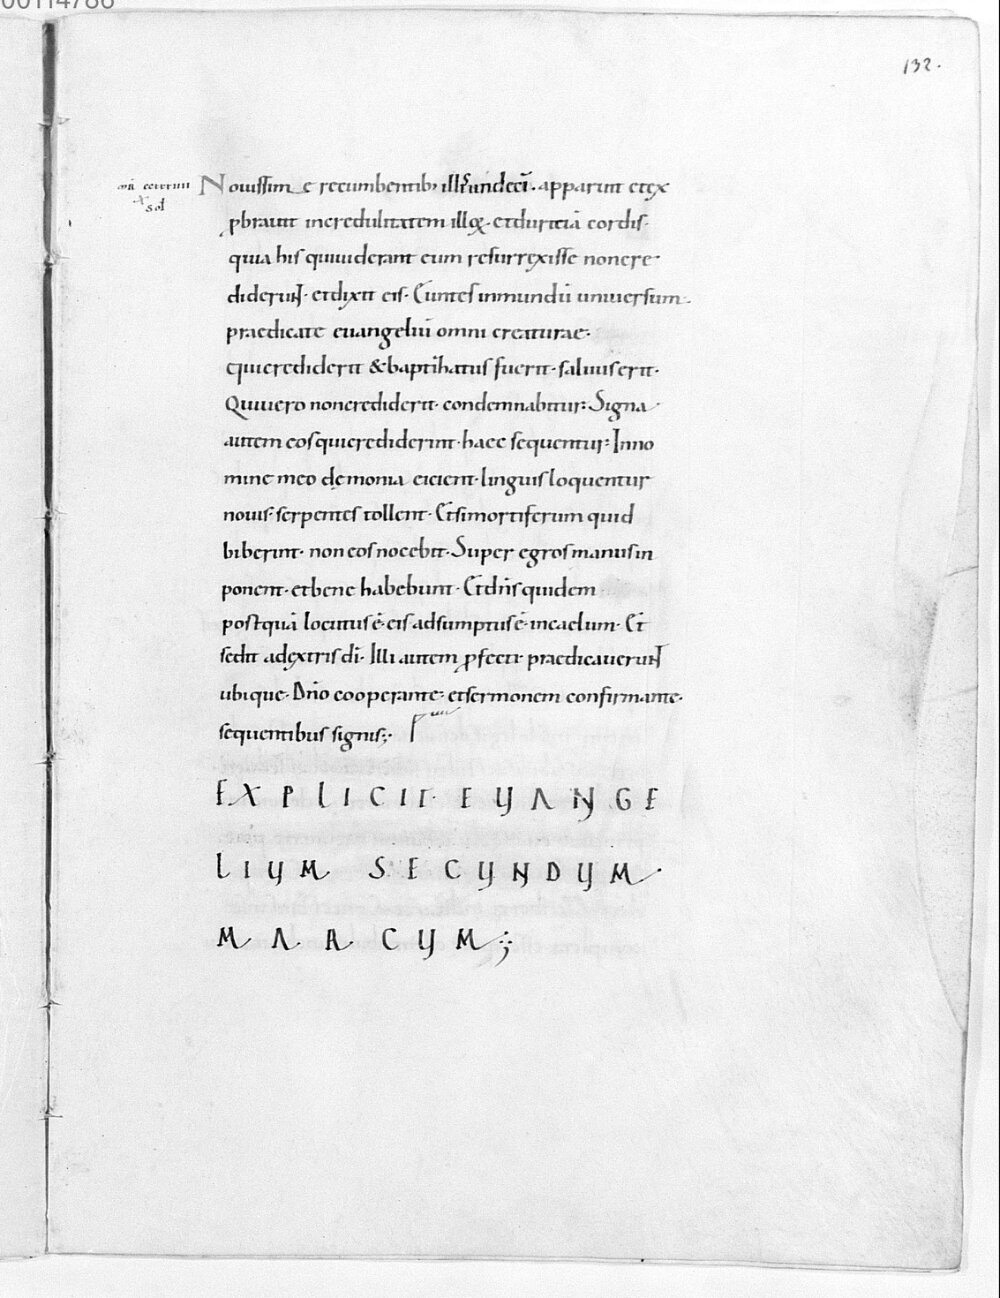 00114786
132.
Nouissime recumbentib; illis undeci͞. apparuit et ex
ꝓbrauit incredulitatem illoꝝ. et duritia͞ cordis.
quia his qui uiderant eum resurrexisse non cre
diderunt. et dixit eis. Euntes in mundu͞ uniuersum.
praedicate euangeliu͞ omni creaturae.
qui crediderit & baptihatus fuerit. saluus erit.
Qui uero non crediderit. condemnabitur: Signa
autem eos qui crediderint. haec sequentur: In no
mine meo demonia eicient. linguis loquentur
nouis. serpentes tollent. Et si mortiferum quid
biberint. non eos nocebit. Super egros manus in
ponent. et bene habebunt. Et dn͞s quidem
postqua͞ locutus e͞. eis adsumptus e͞. in caelum. Et
sedit adextris di͞. Illi autem ꝓfecti. praedicauerunt
ubique. Dn͞o cooperante. et sermonem confirmante.
sequentibus signis;.
EXPLICIT. EVANGE
LIVM SECVNDVM.
MARCVM;